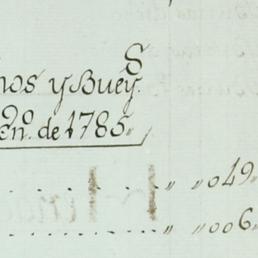 nos y Buey.S
En.o de 1785,,
" " 049 "
" " 006 "